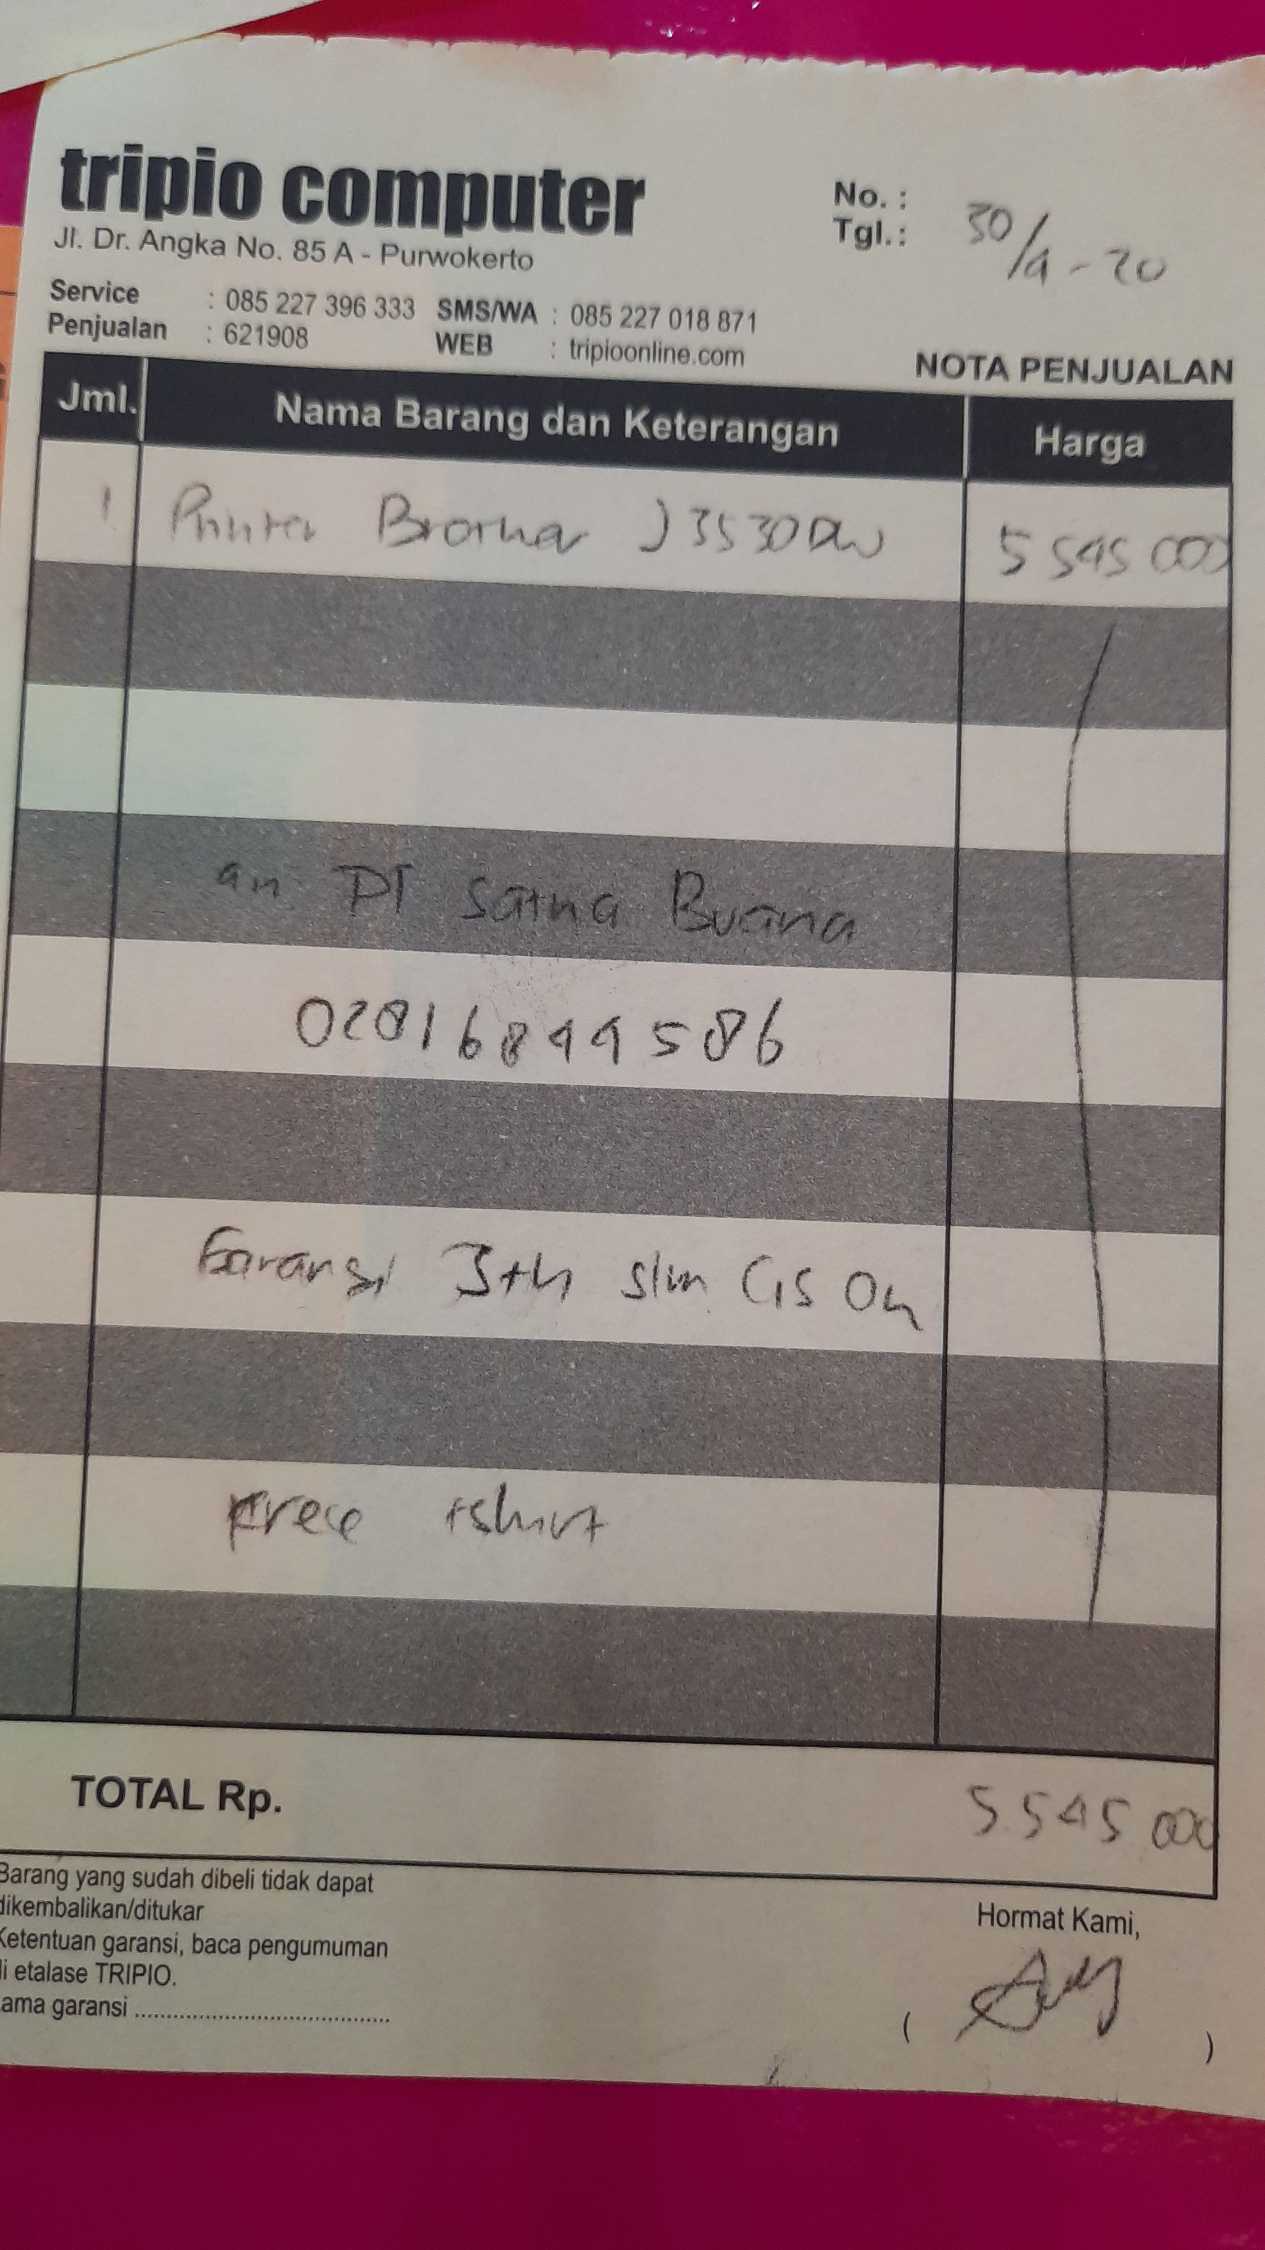 tripio computer
Jl. Dr. Angka No. 85 A - Purwokerto
No. :
Tgl.: 30/9-20
Service : 085 227 396 333 SMS/WA : 085 227 018 871
Penjualan : 621908 WEB : tripioonline.com
NOTA PENJUALAN
Jml. Nama Barang dan Keterangan Harga
1 Printer Brother J3530DW 5 545 000
an PT Satria Buana
02816844586
Garansi 3th
Free tshirt
TOTAL Rp. 5.545 000
Barang yang sudah dibeli tidak dapat
dikembalikan/ditukar
Ketentuan garansi, baca pengumuman
di etalase TRIPIO.
Lama garansi ......................................
Hormat Kami,
( )